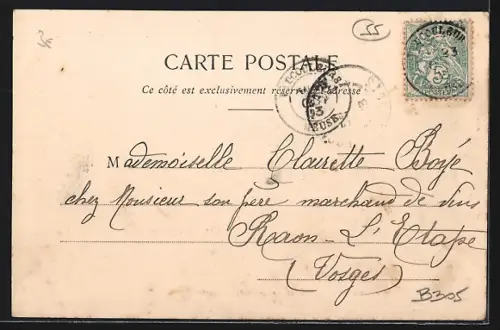 55
CARTE POSTALE
Ce côté est exclusivement réservé à l'adresse
Mademoiselle Clairette Boyé
chez Monsieur son père marchand de vins
Raon-L'Etape
(Vosges)
B305